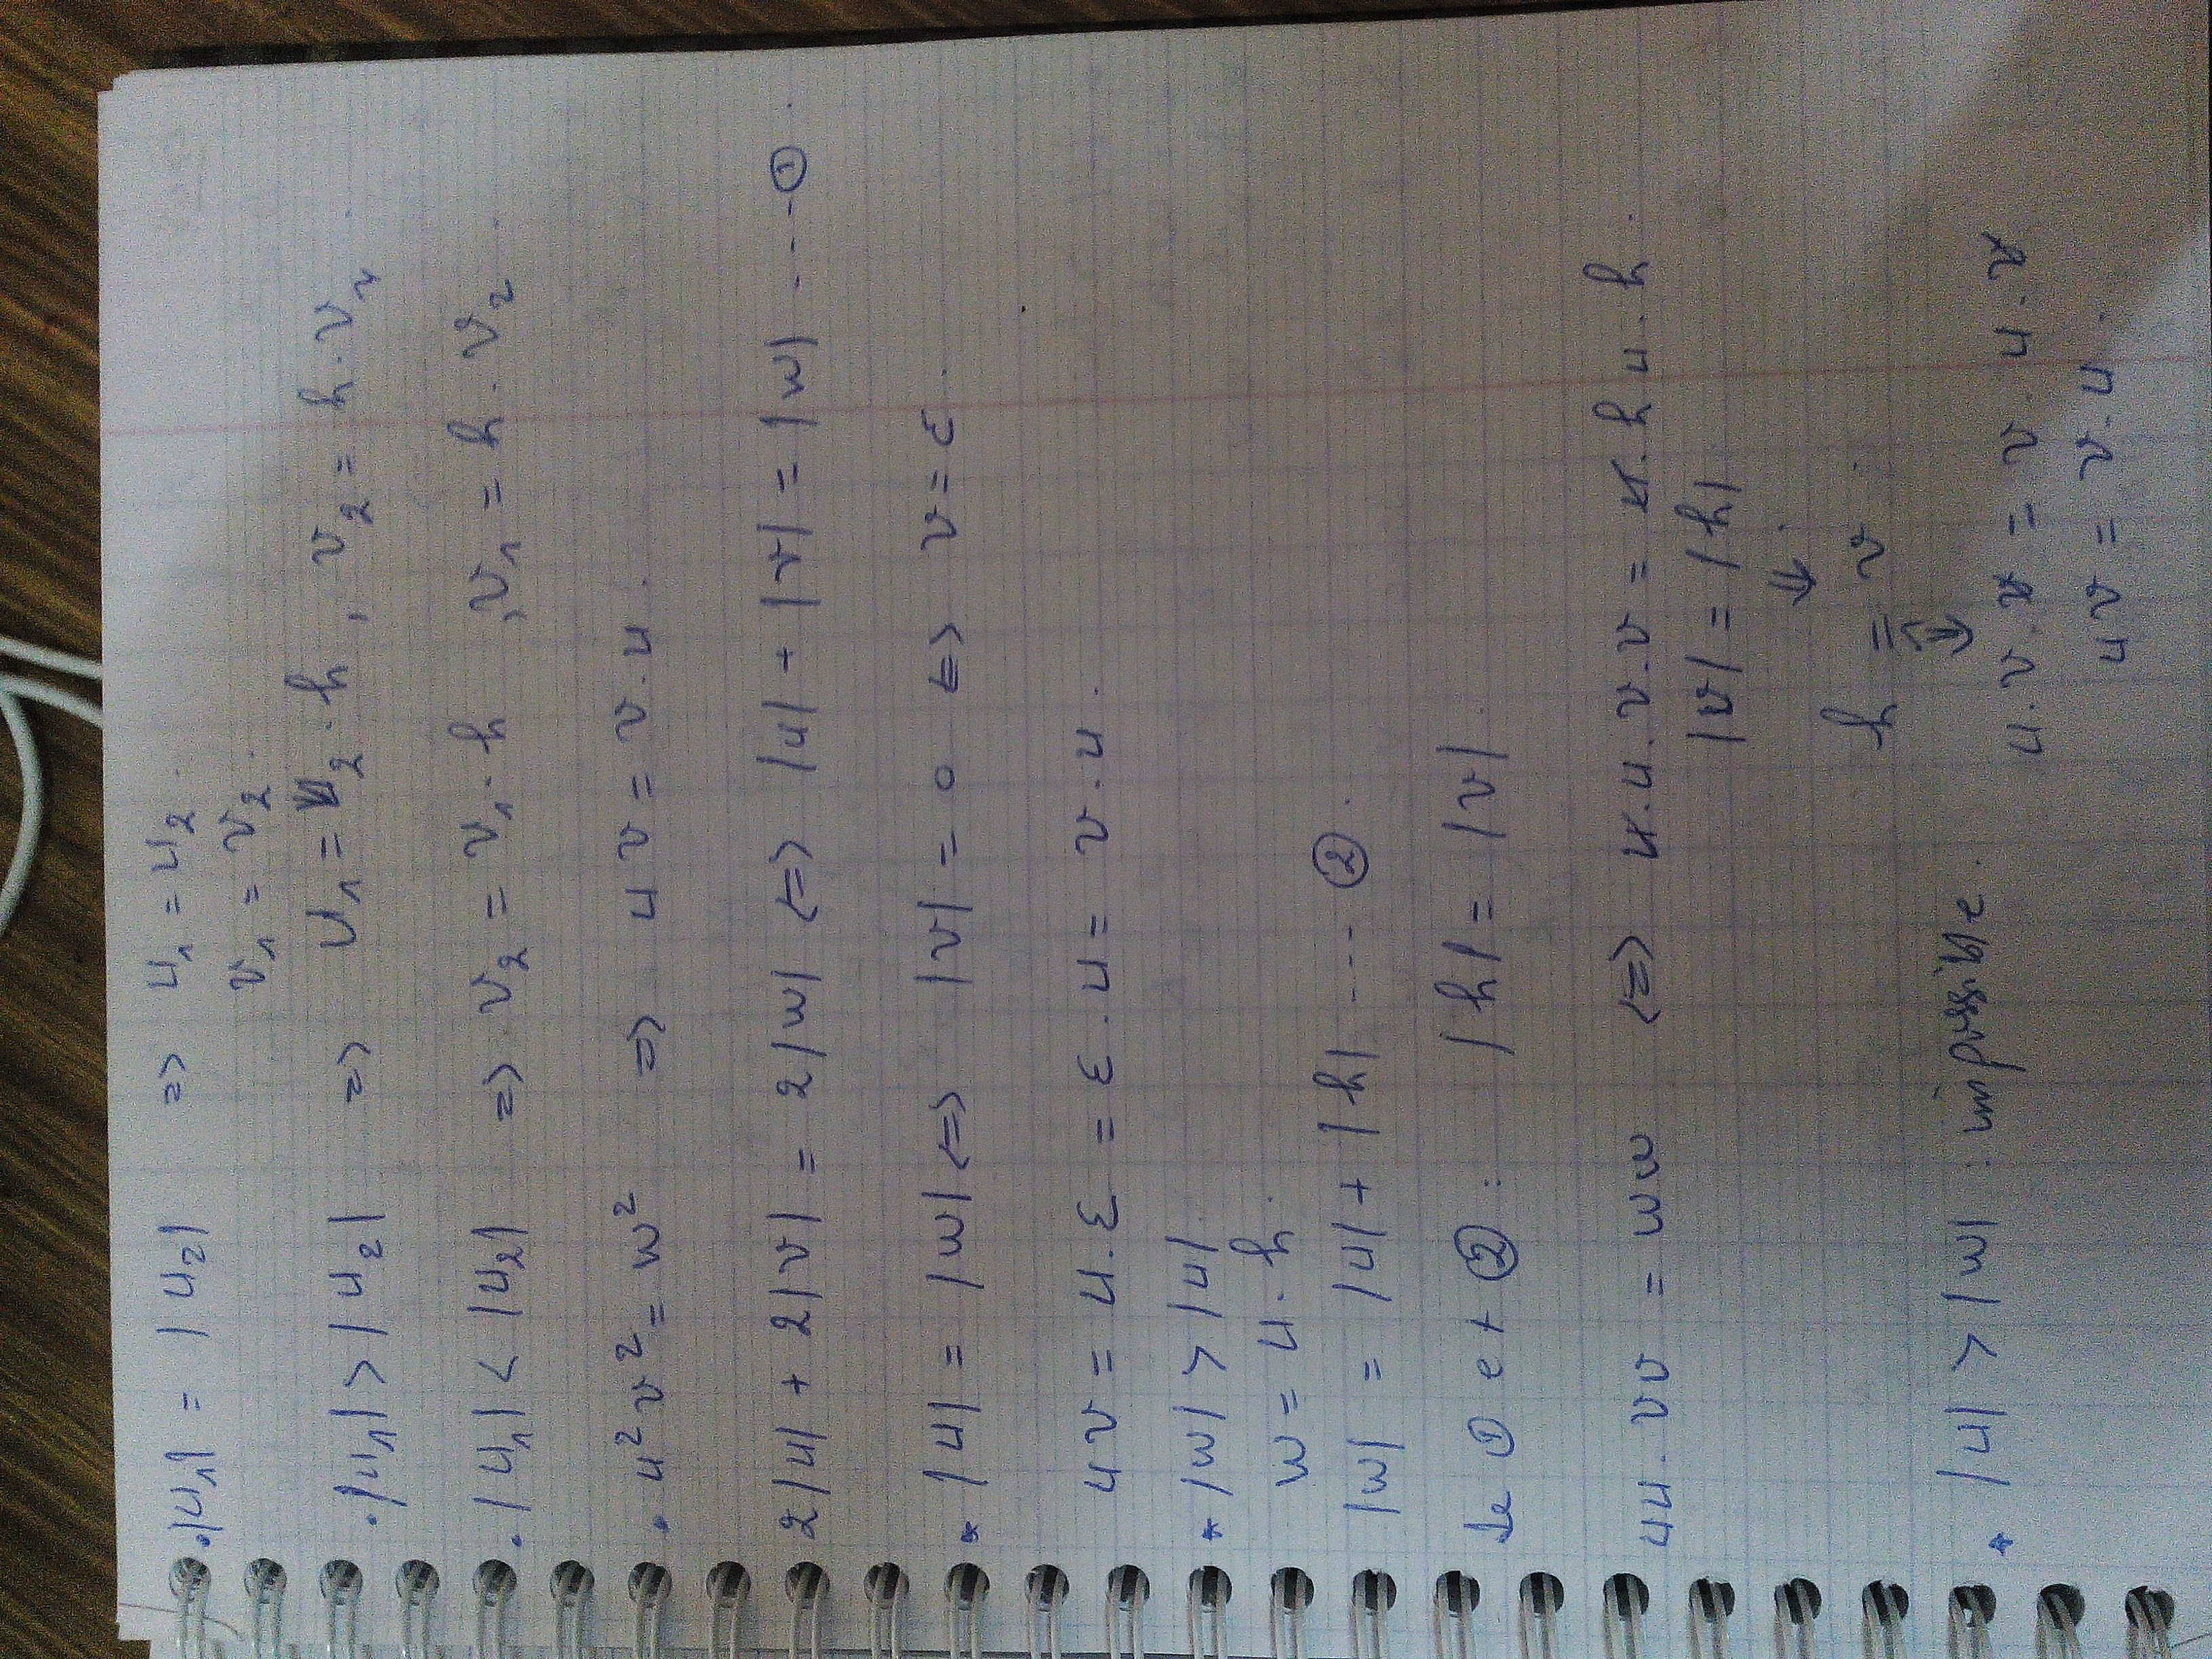 . |u₁| = |u₂| => u₁ = u₂ .
v₁ = v₂ .
. |u₁| > |u₂| => u₁ = u₂ . h , v₂ = h . v₁ .
. |u₁| < |u₂| => v₂ = v₁ . h , v₁ = h . v₂ .
. u² v² = w² => u v = v . u .
2|u| + 2|v| = 2|w| <=> |u| + |v| = |w| ---- ① .
* |u| = |w| <=> |v| = 0 <=> v = ε .
u v = u . ε = ε . u = v . u .
* |w| > |u| .
w = u . h .
|w| = |u| + |h| ---- ② .
de ① et ② : |h| = |v| .
uu . vv = ww <=> u . u . v . v = u . h u . h .
|v| = |h|
⇓ .
h = v .
⇓
* |u| > |w| : impossible .
u . v . v = v . u . v
u v = v . u .